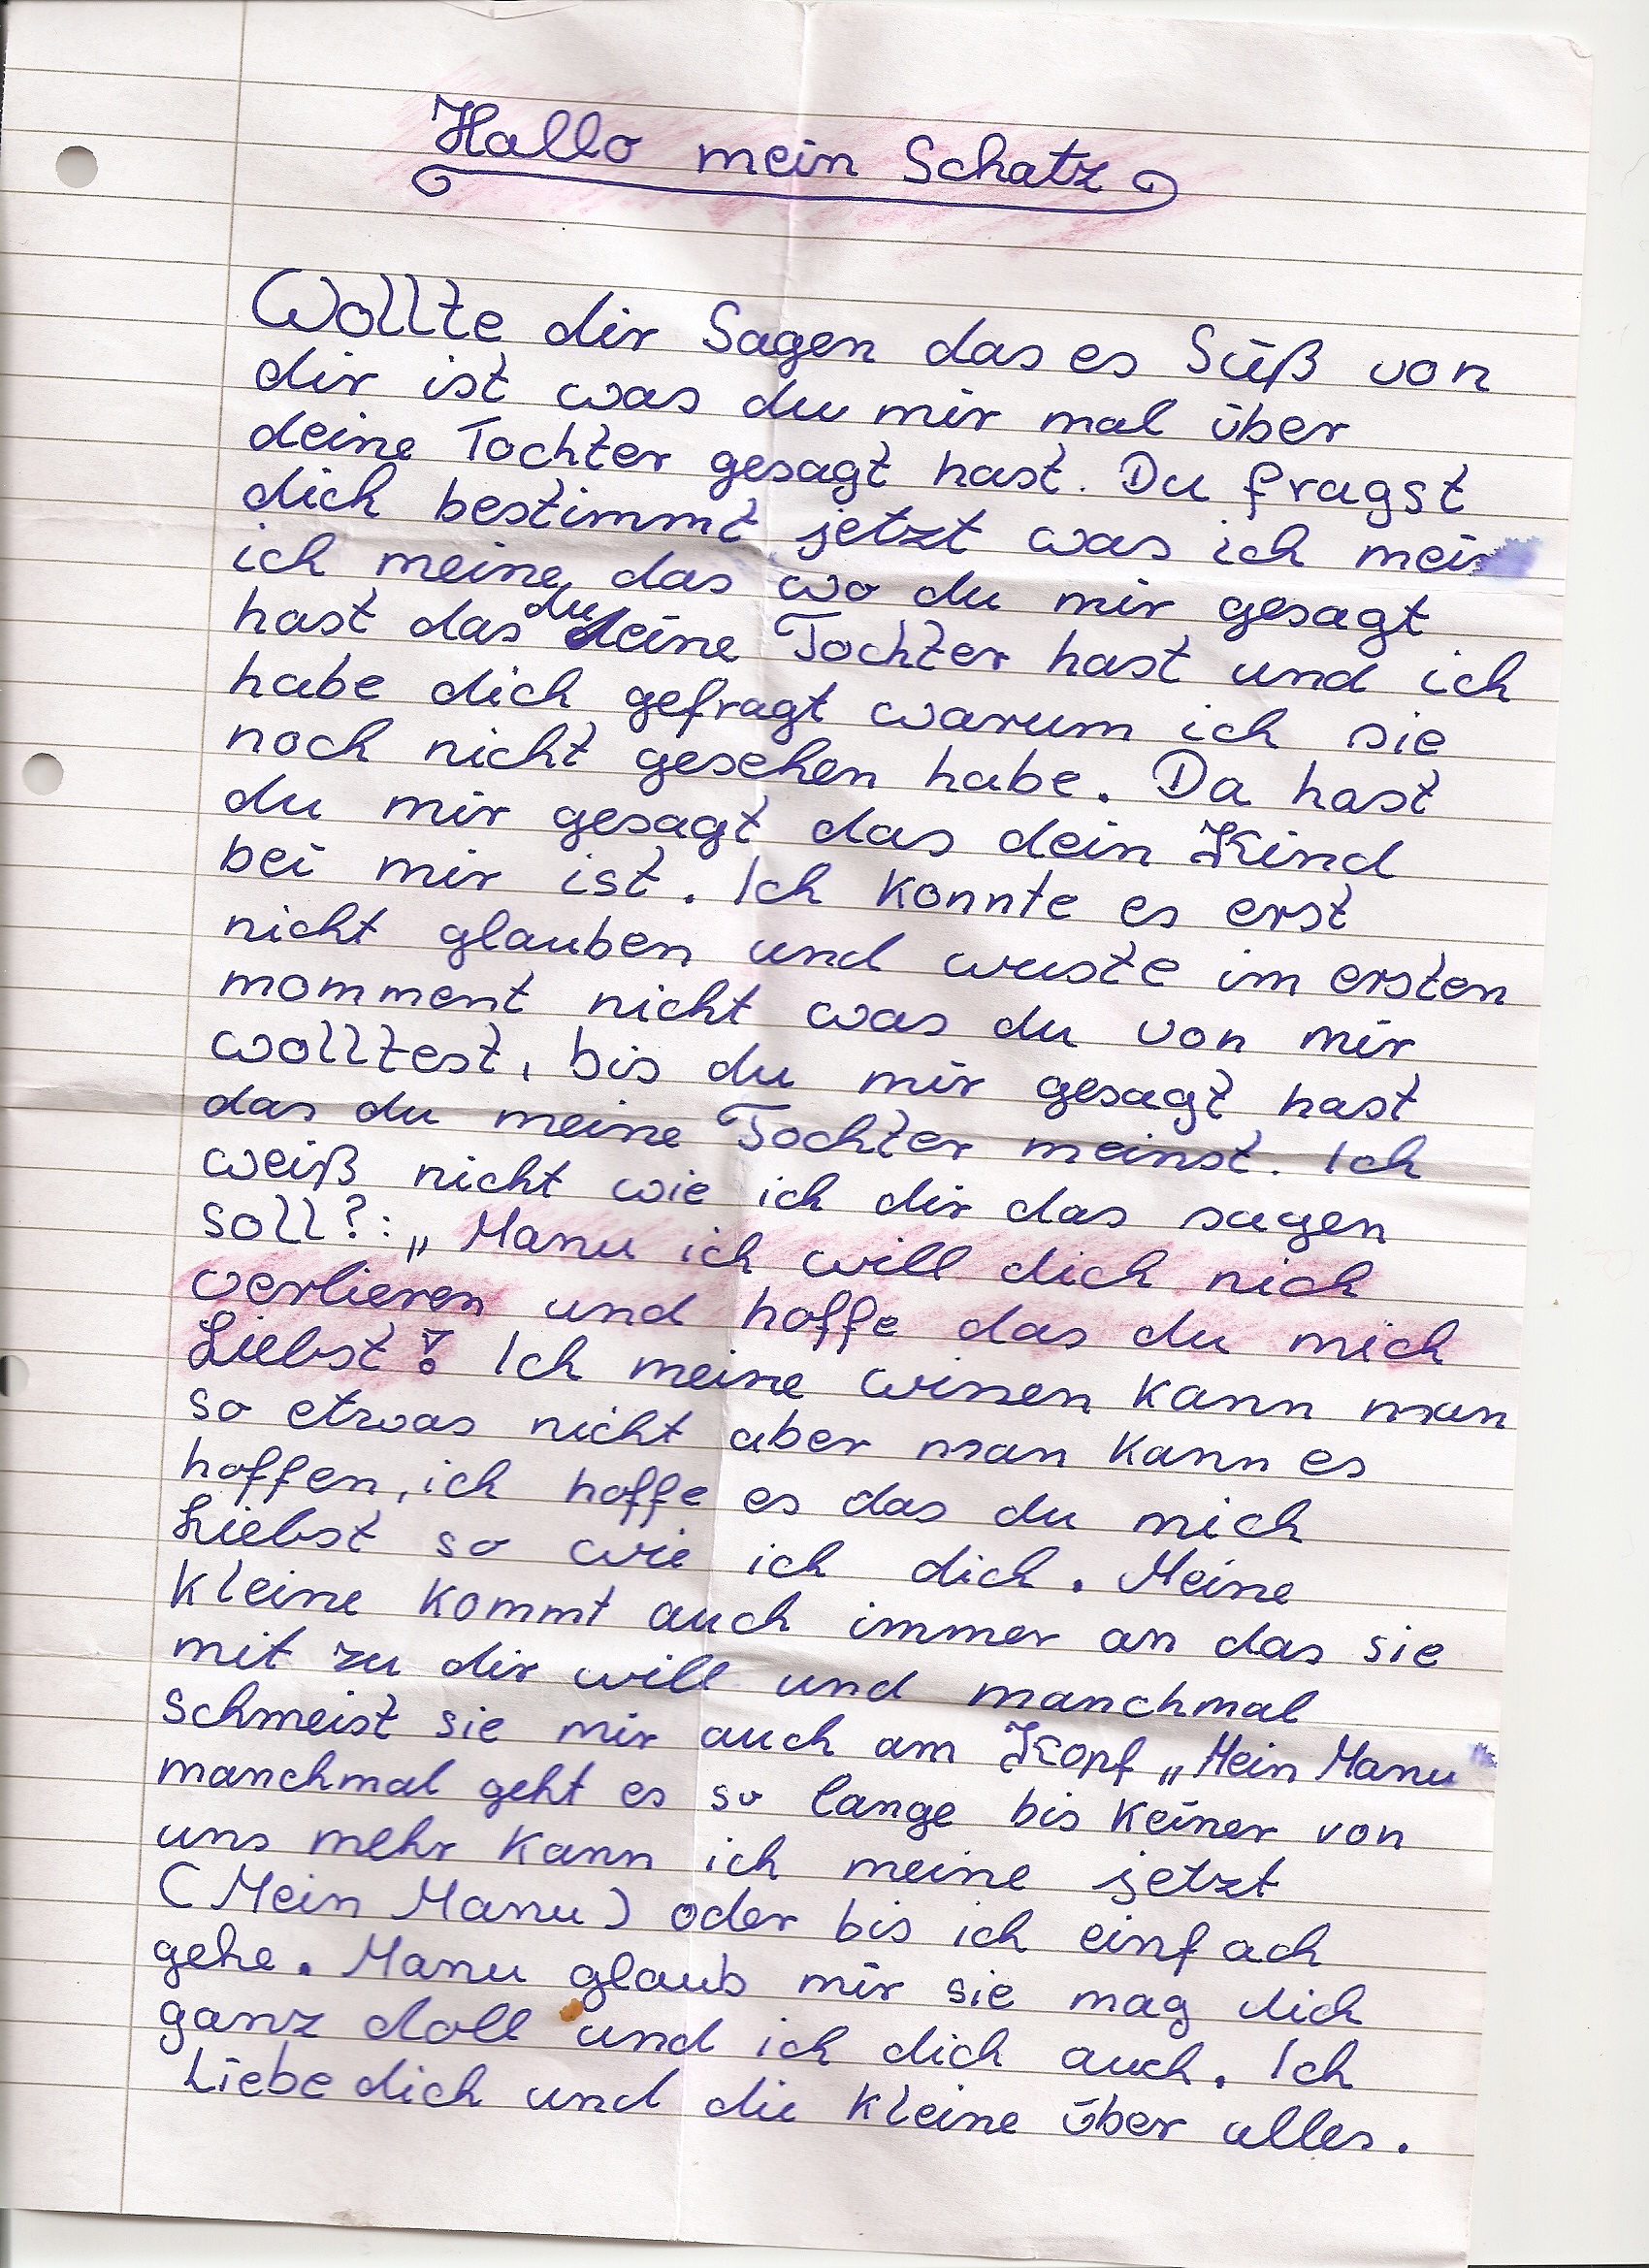 Hallo mein Schatz
Wollte dir Sagen das es Süß von
dir ist was du mir mal über
deine Tochter gesagt hast. Du fragst
dich bestimmt jetzt was ich mein
ich meine das wo du mir gesagt
hast das du eine Tochter hast und ich
habe dich gefragt warum ich sie
noch nicht gesehen habe. Da hast
du mir gesagt das dein Kind
bei mir ist. Ich konnte es erst
nicht glauben und wuste im ersten
momment nicht was du von mir
wolltest, bis du mir gesagt hast
das du meine Tochter meinst. Ich
weiß nicht wie ich dir das sagen
soll?: „Manu ich will dich nich
verlieren und hoffe das du mich
Liebst! Ich meine wissen kann man
so etwas nicht aber man kann es
hoffen, ich hoffe es das du mich
Liebst so wie ich dich. Meine
kleine kommt auch immer an das sie
mit zu dir will und manchmal
schmeist sie mir auch am Kopf „Mein Manu"
manchmal geht es so lange bis keiner von
uns mehr kann ich meine jetzt
(Mein Manu) oder bis ich einfach
gehe. Manu glaub mir sie mag dich
ganz doll und ich dich auch. Ich
Liebe dich und die kleine über alles.